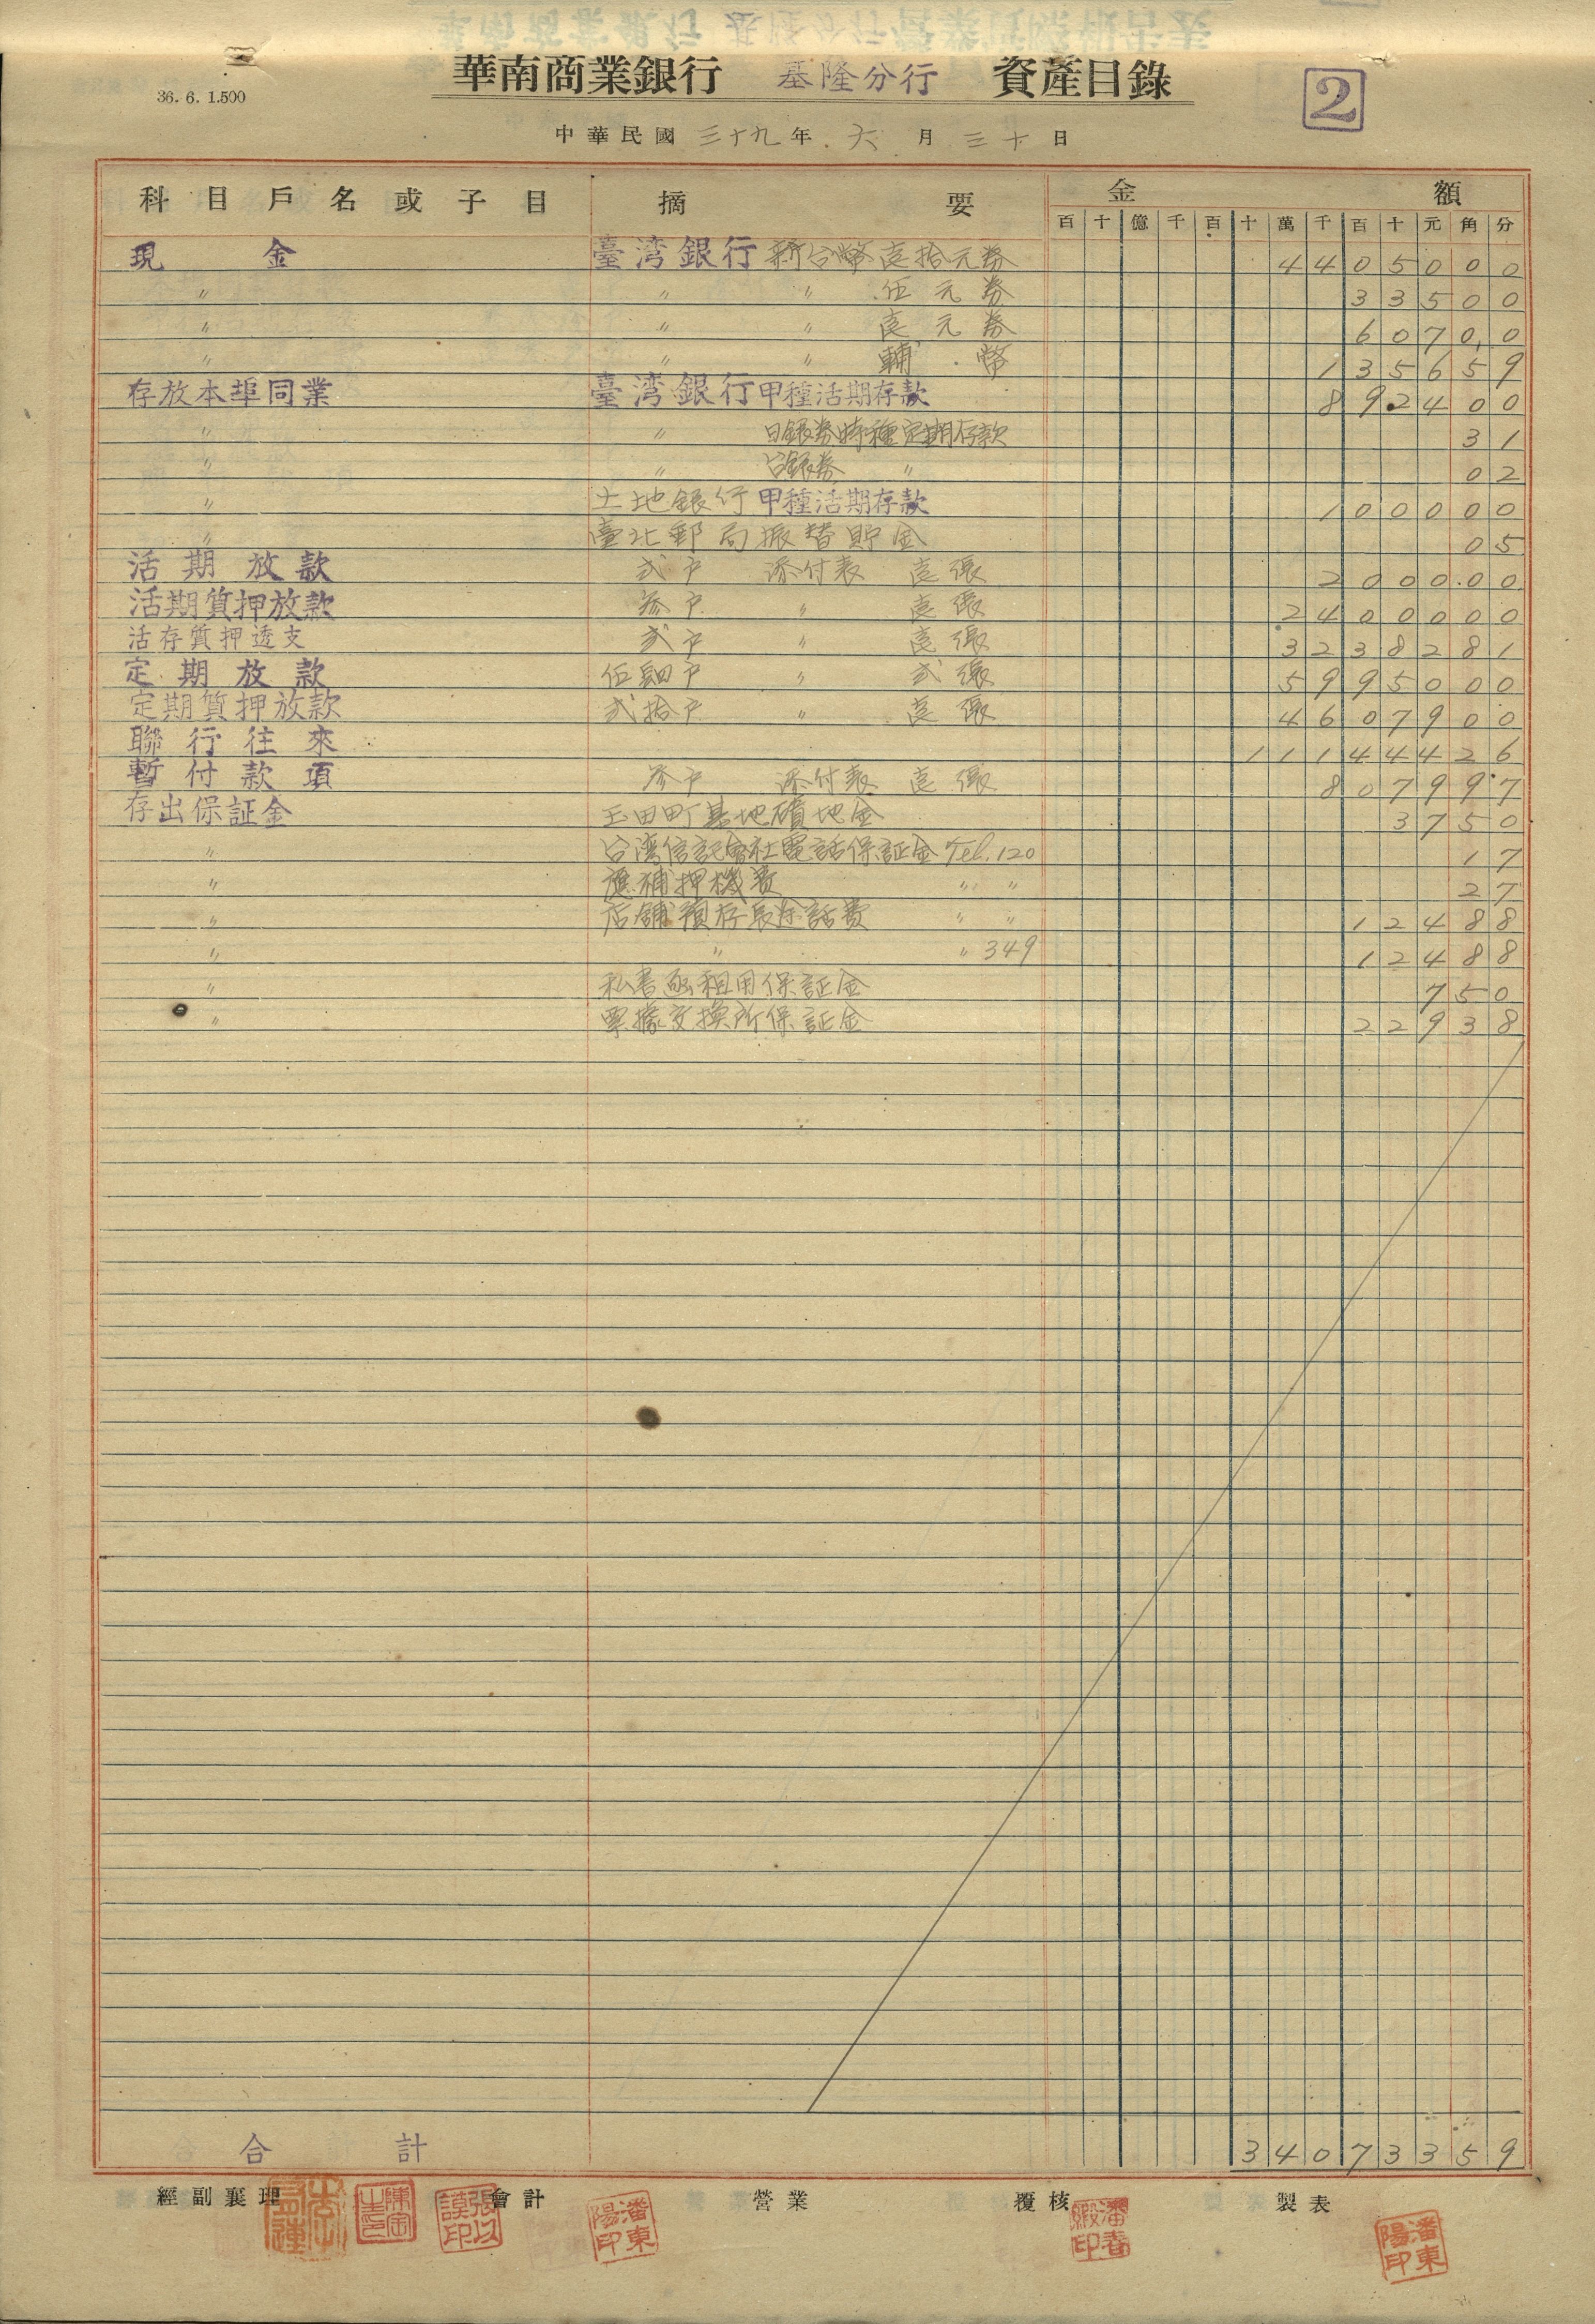 36. 6. 1.500
華南商業銀行 基隆分行 資產目錄
2
中華民國 三十九 年 六 月 三十 日
科目戶名或子目 摘要 金額
百 十 億 千 百 十 萬 千 百 十 元 角 分
現金 臺湾銀行 新台幣 壹拾元券 4 4 0 5 0 0 0
〃 〃 〃 伍元券 3 3 5 0 0
〃 〃 〃 壹元券 6 0 7 0 0
〃 〃 〃 輔幣 1 3 5 6 5 9
存放本埠同業 臺湾銀行 甲種活期存款 8 9 2 4 0 0
〃 〃 日銀券特種定期存款 3 1
〃 〃 台銀券 〃 0 2
〃 土地銀行 甲種活期存款 1 0 0 0 0 0
〃 臺北郵局振替貯金 0 5
活期放款 弍戶 添付表 壹張 2 0 0 0 0 0
活期質押放款 參戶 〃 壹張 2 4 0 0 0 0 0
活存質押透支 弍戶 〃 壹張 3 2 3 8 2 8 1
定期放款 伍戶 〃 弍張 5 9 9 5 0 0 0
定期質押放款 弍拾戶 〃 壹張 4 6 0 7 9 0 0
聯行往來 1 1 1 4 4 4 2 6
暫付款項 參戶 添付表 壹張 8 0 7 9 9 7
存出保証金 玉田町基地積地金 3 7 5 0
〃 台湾信託會社電話保証金 Tel. 120 1 7
〃 應補押機費 〃 〃 2 7
〃 店舖預存長途話費 〃 〃 1 2 4 8 8
〃 〃 〃 349 1 2 4 8 8
〃 私書函租用保証金 7 5 0
〃 票據交換所保証金 2 2 9 3 8
合計 3 4 0 7 3 3 5 9
經副襄理 會計 營業 覆核 製表
張以謨印
潘東陽印
潘東陽印